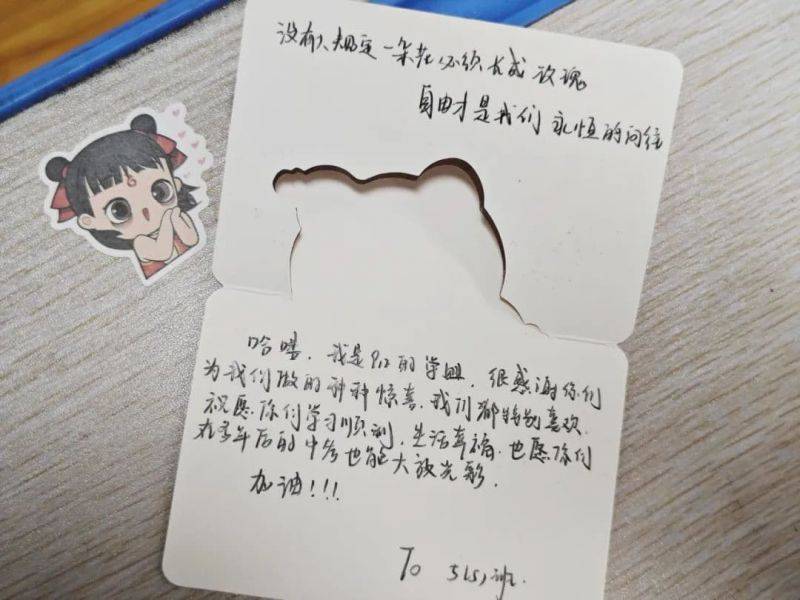 没有人规定一朵花必须长成玫瑰
自由才是我们永恒的向往
哈喽，我是912的学姐，很感谢你们
为我们做的种种惊喜，我们都特别喜欢
祝愿你们学习顺利，生活幸福，也愿你们
在多年后的中考也能大放光彩，
加油！！！
To 5(5)班